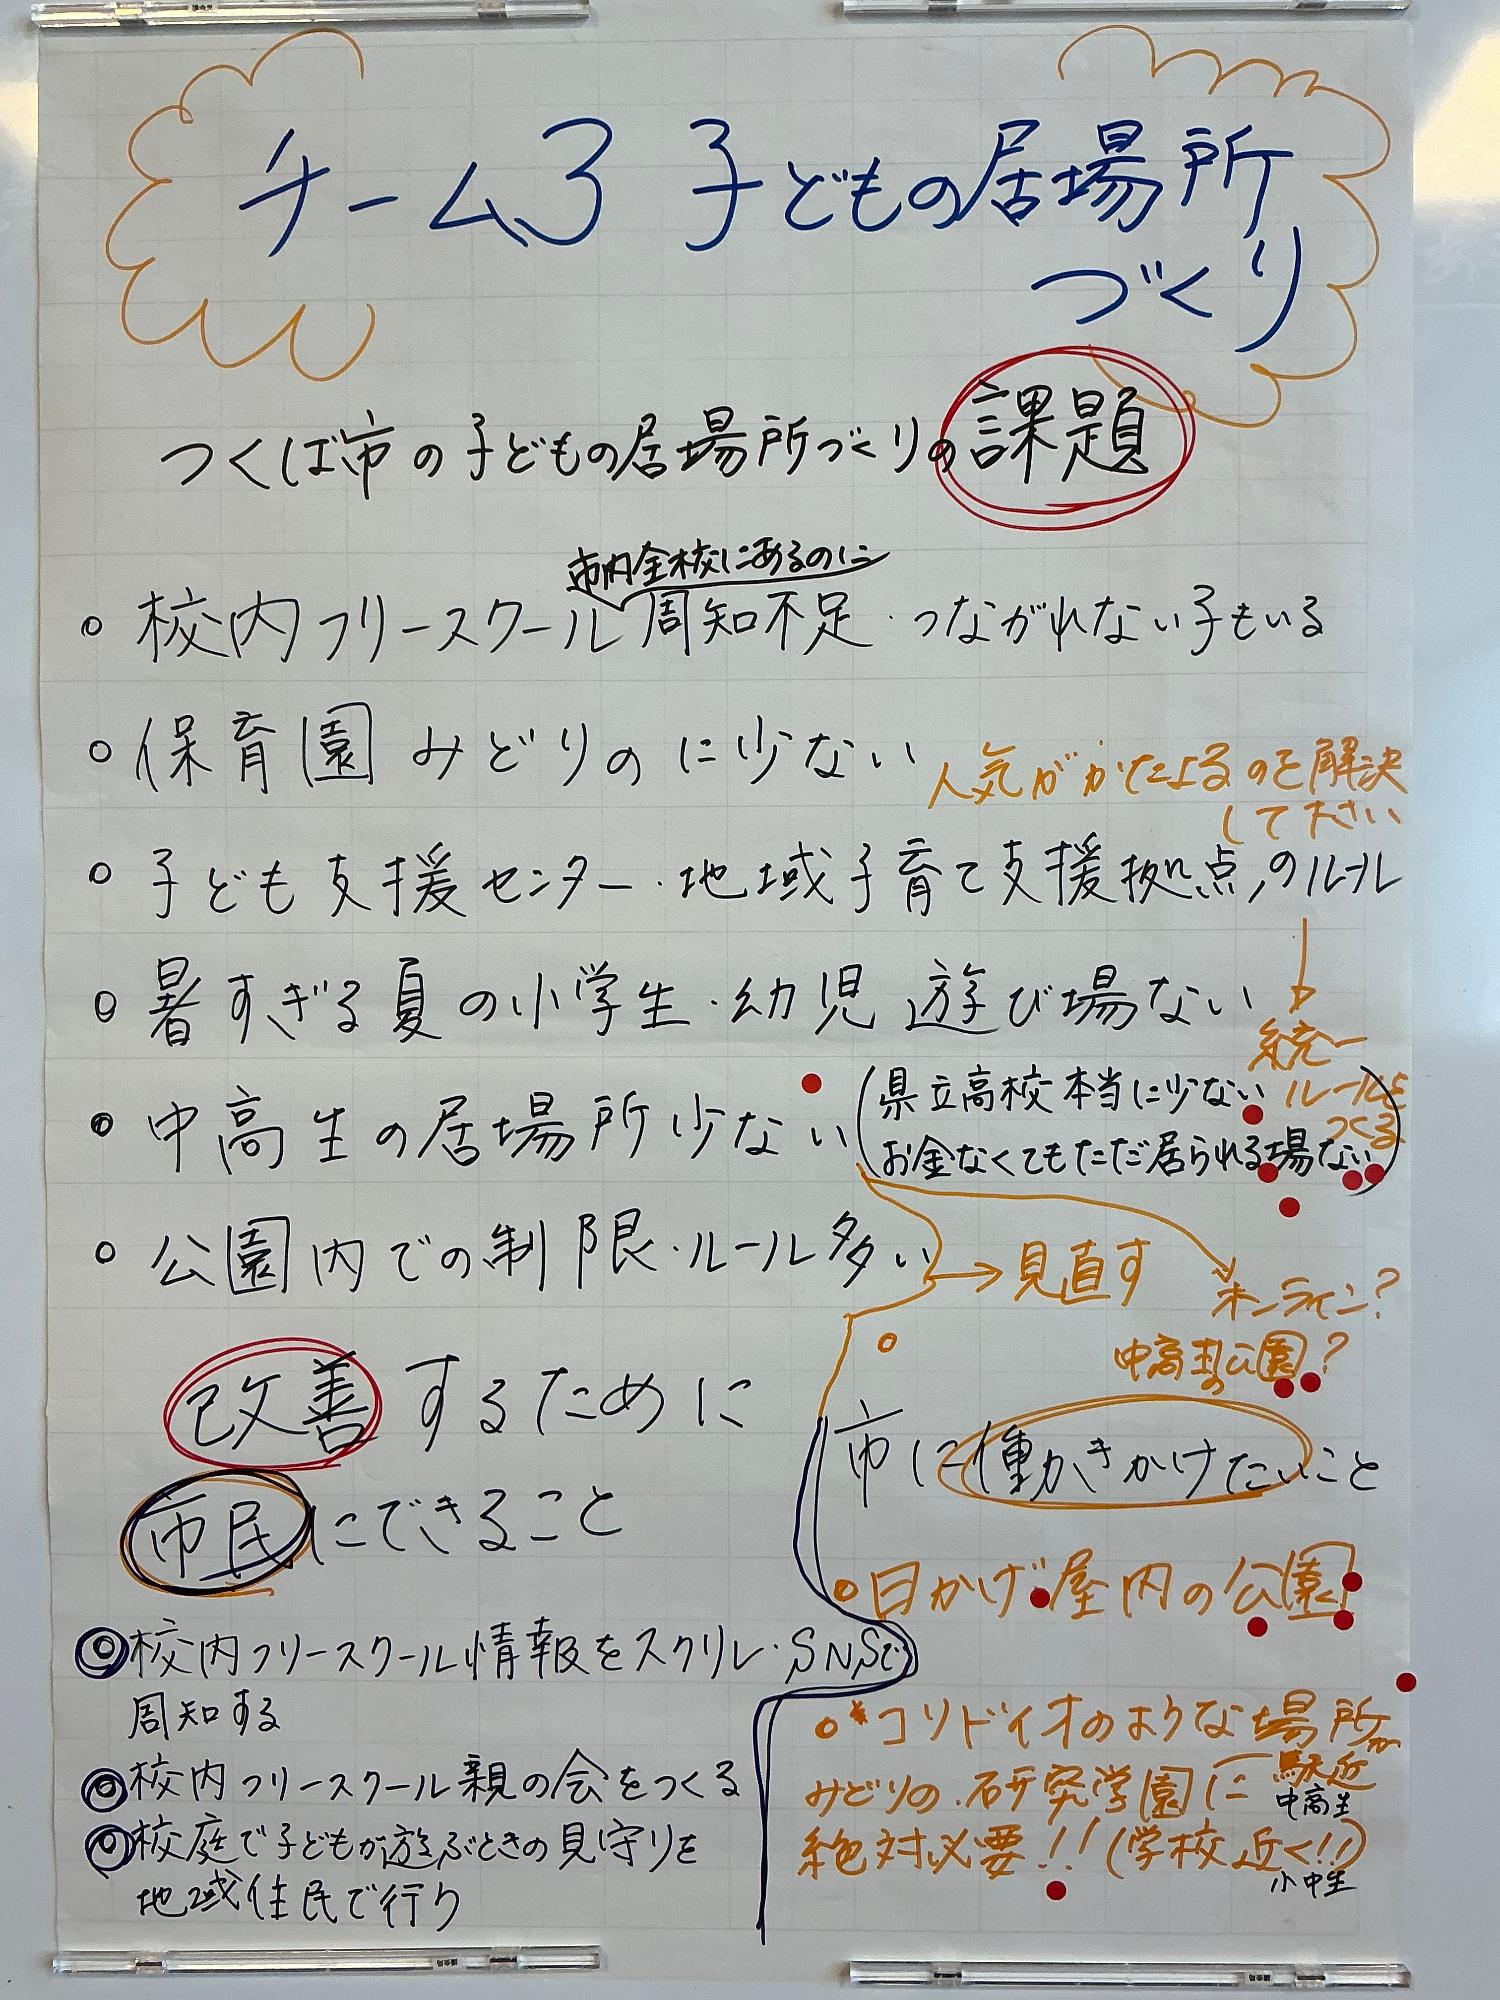 チーム3 子どもの居場所
づくり
つくば市の子どもの居場所づくりの課題
市内全校にあるのに
○ 校内フリースクール 周知不足・つながれない子もいる
○ 保育園 みどりの に少ない
人気がかたよるのを解決
して下さい
○ 子ども支援センター・地域子育て支援拠点のルール
○ 暑すぎる夏の小学生・幼児 遊び場ない
統一
ルールを
つくる
○ 中高生の居場所少ない
(県立高校本当に少ない
お金なくてもただ居られる場ない)
○ 公園内での制限・ルール多い
→見直す
オンライン?
中高生の公園?
改善するために
市民にできること
◎校内フリースクール情報をスクリレ・SNSで
周知する
◎校内フリースクール親の会をつくる
◎校庭で子どもが遊ぶときの見守りを
地域住民で行う
市に働きかけたいこと
○日かげ 屋内の公園
○*コリドイオのような場所が
みどりの・研究学園に 駅近
中高生
絶対必要!!(学校近く!!)
小中生